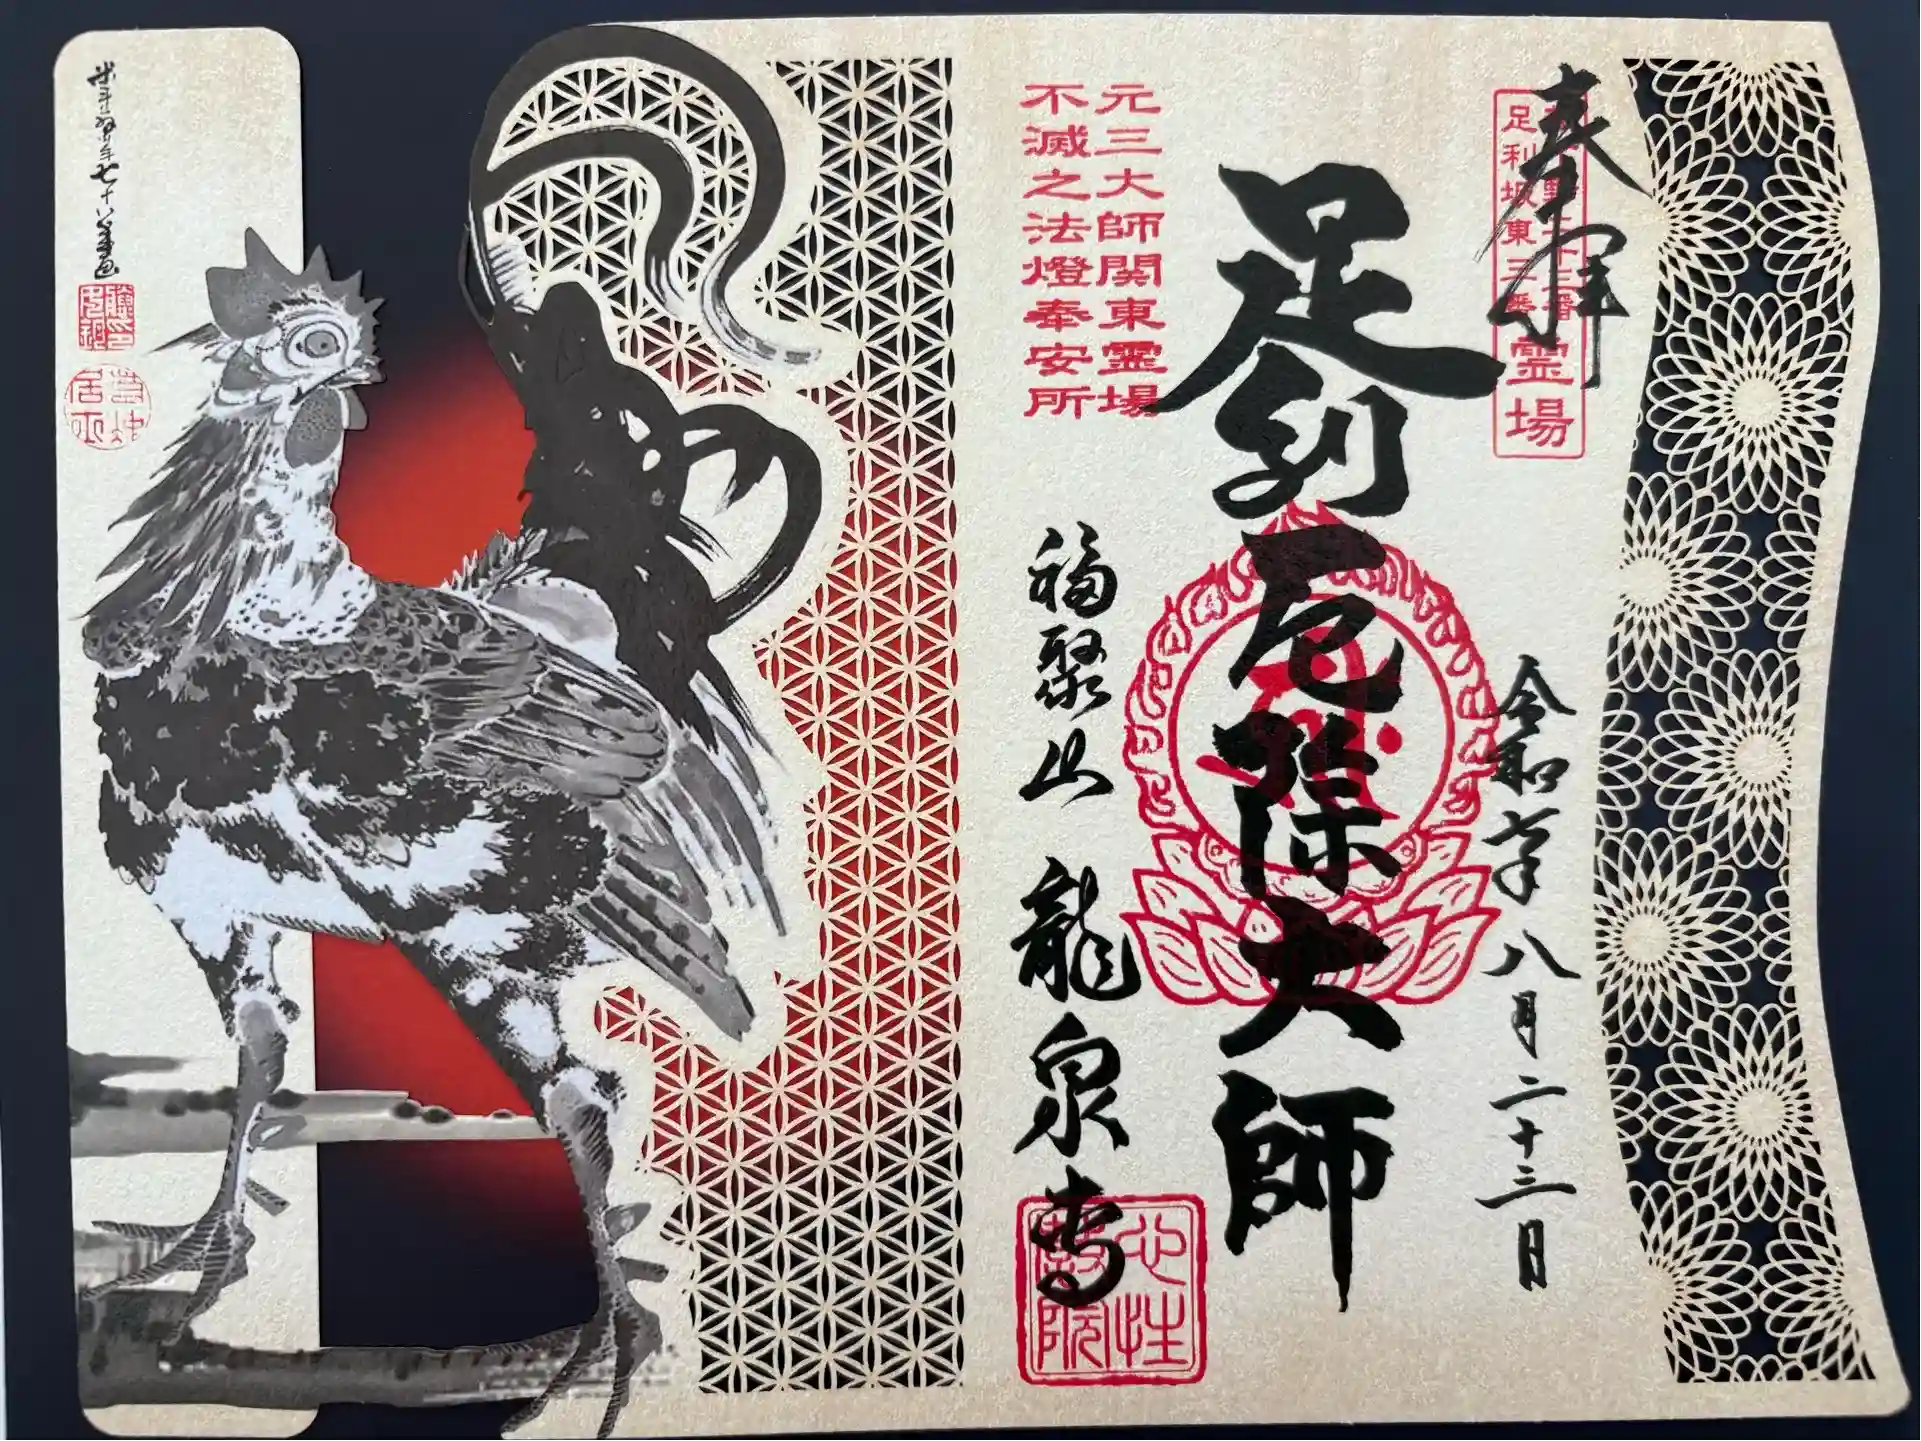 奉拝
足利坂東三番霊場
令和六年八月二十三日
足利厄除大師
元三大師関東霊場
不滅之法燈奉安所
福聚山
龍泉寺
心性
米斗翁